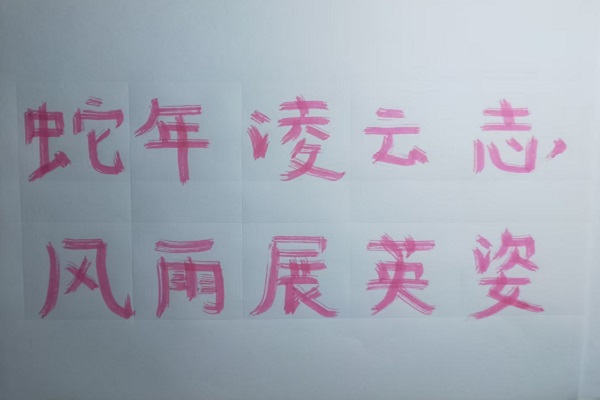 蛇年凌云志,
风雨展英姿